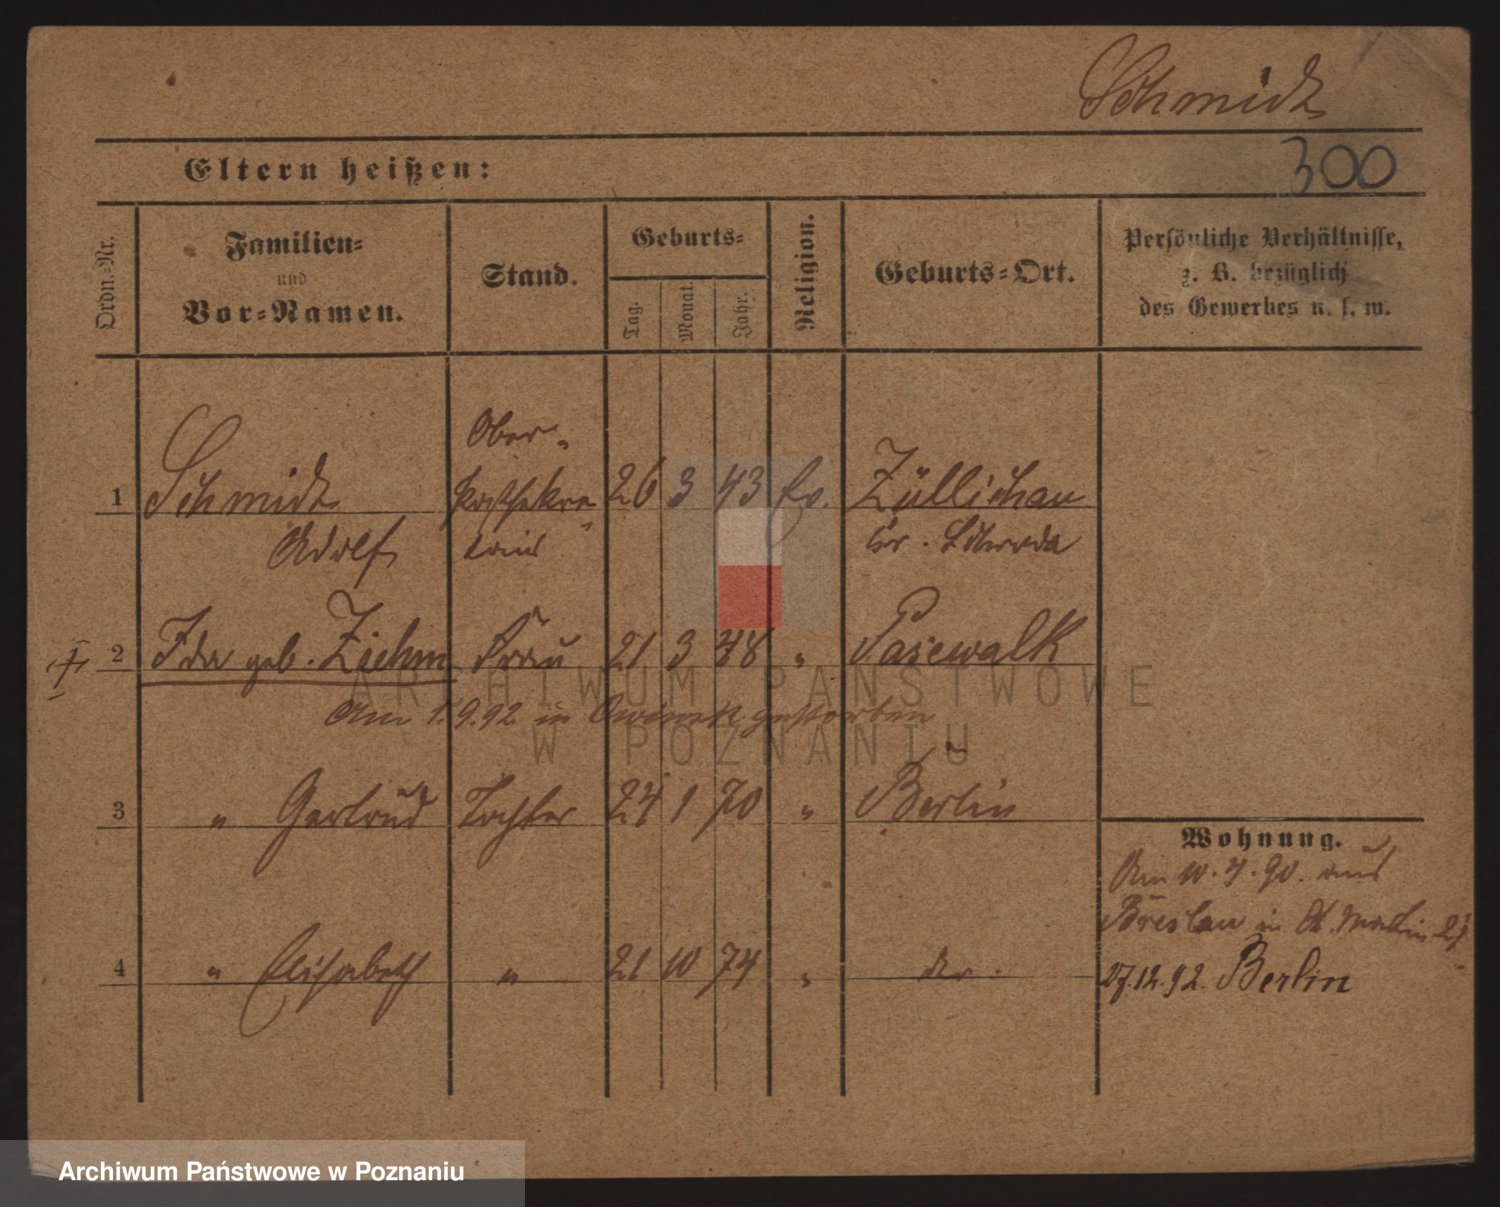 Schmidt
300
Eltern heißen:
Ordn.-Nr.
Familien-
und
Vor-Namen.
Stand.
Geburts-
Tag.
Monat.
Jahr.
Religion.
Geburts-Ort.
Persönliche Verhältnisse,
z. B. bezüglich
des Gewerbes u. s. w.
Ober-
1 Schmidt postsekre- 26 3 43 Ev. Züllichau
Adolf tair Kr.
2 Ida geb. Ziehm Frau 21 3 48 " Pasewalk
Am 1.9.92 in Owinsk gestorben
3 " Gertrud Tochter 24 1 70 " Berlin
Wohnung.
Am 10.7.90. aus
Breslau in St. Martin
4 " Elisabeth " 21 10 74 " do.
27.12.92. Berlin
ARCHIWUM PAŃSTWOWE
W POZNANIU
Archiwum Państwowe w Poznaniu